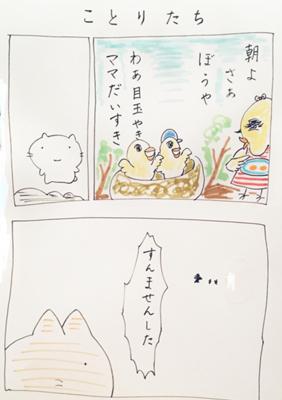 ことりたち
朝よ
さぁ
ぼうや
わあ目玉やき
ママだいすき
すんませんした